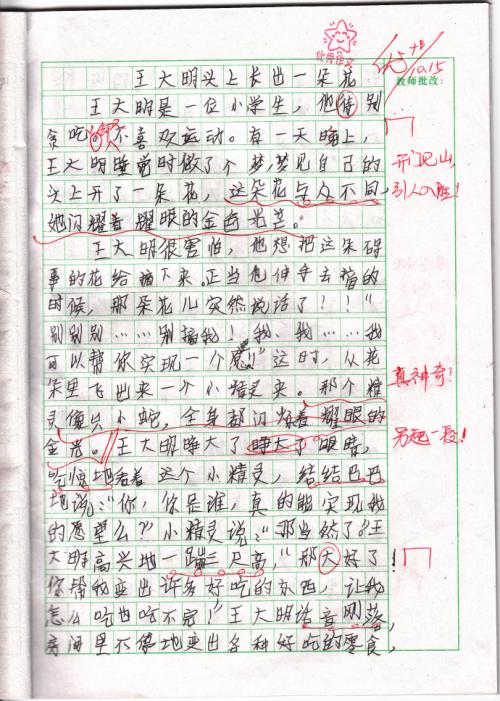 优秀作文
优+B
10.15
教师批改:
王大明头上长出一朵花
王大明是一位小学生,他特别
贪吃,不喜欢运动。有一天晚上,
王大明睡觉时做了个梦,梦见自己的
头上开了一朵花,这朵花与众不同,
她闪耀着耀眼的金色光芒。
开门见山,
引人入胜!
王大明很害怕,他想把这朵碍
事的花给摘下来。正当他伸手去摘的
时候,那朵花儿突然说话了!!“
别别别……别摘我!我、我……我
可以帮你实现一个愿!”这时,从花
朵里飞出来一个小精灵来。那个精
真神奇!
灵像只小蛇,全身都闪烁着耀眼的
金光。王大明睁大了睁大了眼睛,
另起一段!
吃惊地看着这个小精灵,结结巴巴
地说:“你,你是谁,真的能实现我
的愿望么?”小精灵说:“那当然了?王
大明高兴地一蹦三尺高,“那太好了!
你帮我变出许多好吃的东西,让我
怎么吃也吃不完!”王大明话音刚落,
房间里不停地变出各种好吃的零食,